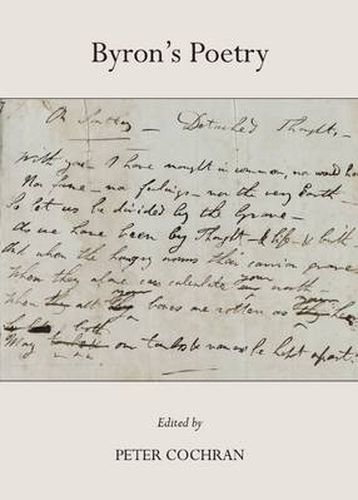 Byron's Poetry
On Southey — Detached Thought —
With you I have nought in common, nor would have
Nor fame — nor feelings — nor the very Earth —
So let us be divided by the Grave —
As we have been by Thought — & life — & birth
And when the hungry worms their carrion crave
When they alone can calculate your worth —
When all your bones are rotten as
both
May our tombs be kept apart!
Edited by
PETER COCHRAN